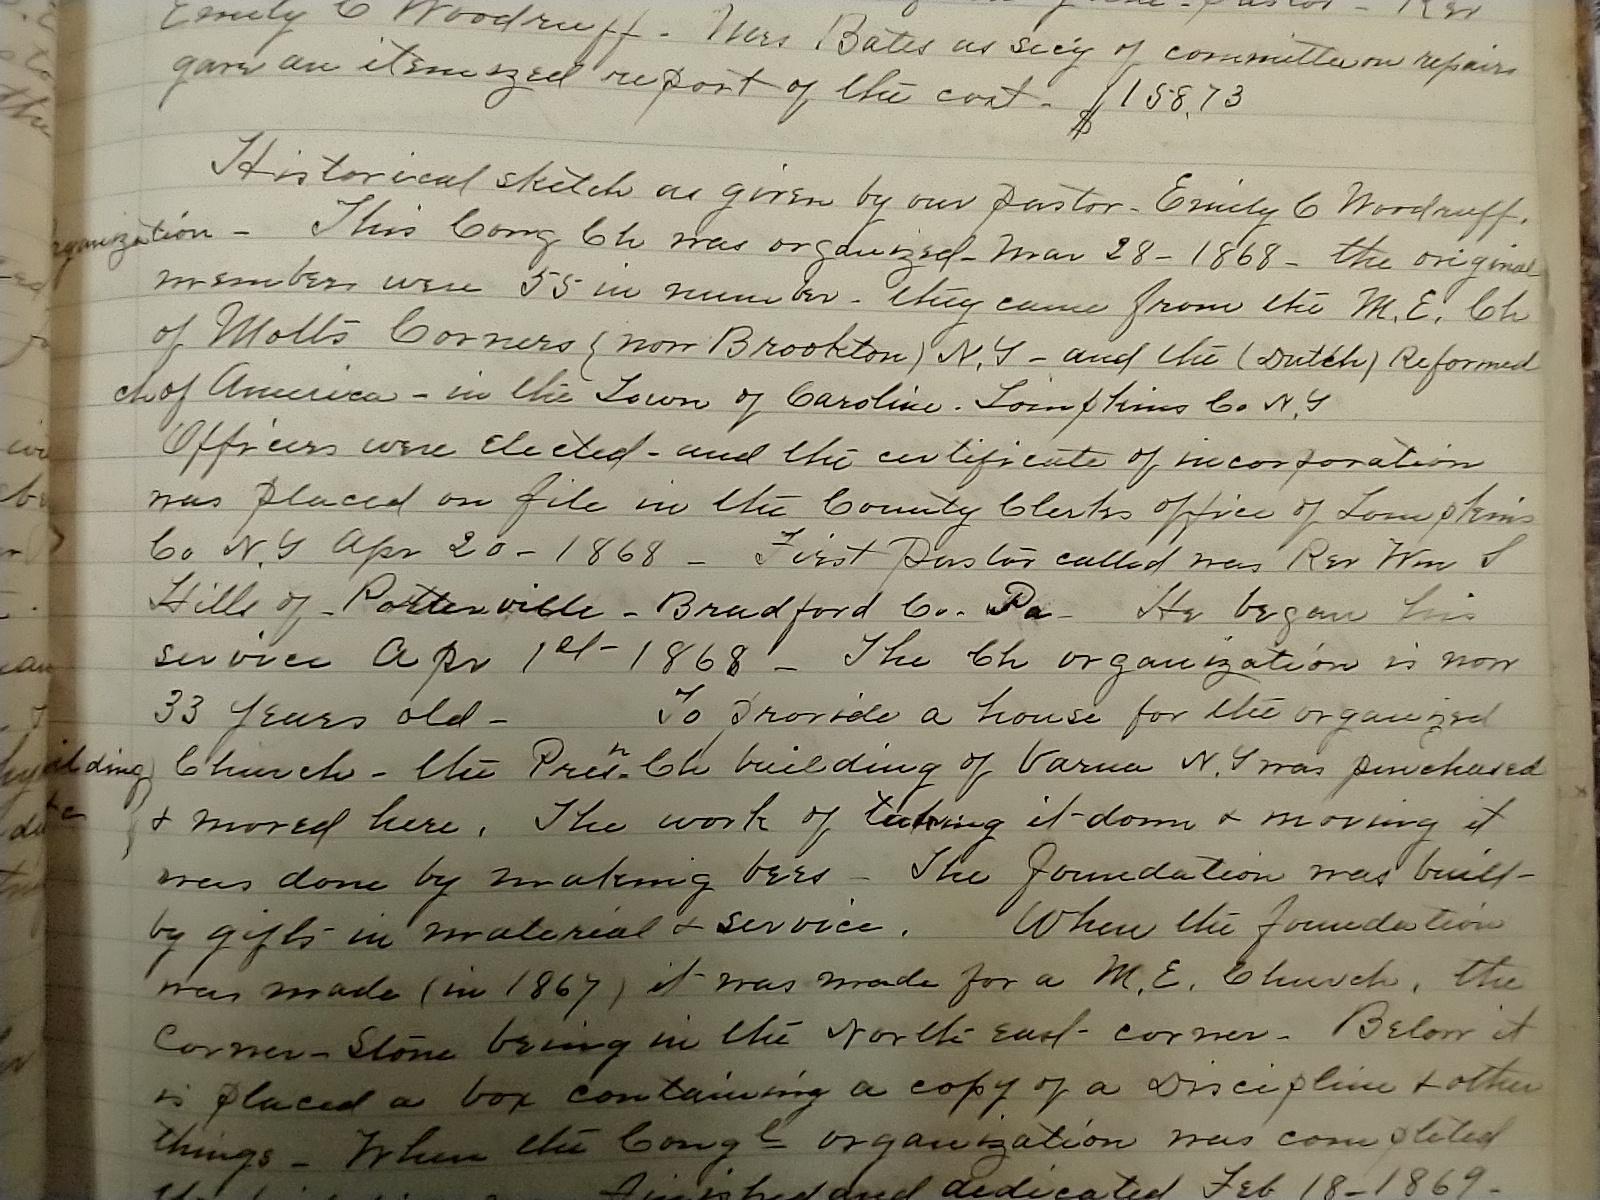 Emily C Woodruff. Mrs Bates as secy of committee on repairs
gave an itemized report of the cost - $158.73
Historical sketch as given by our pastor - Emily C Woodruff.
Organization - This Cong Ch was organized - Mar 28 - 1868 - the original
members were 55 in number - they came from the M.E. Ch
of Motts Corners (now Brookton) N.Y - and the (Dutch) Reformed
ch of America - in the Town of Caroline. Tompkins Co N.Y
Officers were elected - and the certificate of incorporation
was placed on file in the County Clerks office of Tompkins
Co N.Y Apr 20 - 1868 - First pastor called was Rev Wm S
Hills of - Potterville - Bradford Co. Pa - He began his
service Apr 1st - 1868 - The Ch organization is now
33 years old - To provide a house for the organized
Building Church - the Presn. Ch building of Varna N.Y was purchased
& moved here. The work of taking it down & moving it
was done by making bees - The foundation was built
by gifts in material & service. When the foundation
was made (in 1867) it was made for a M.E. Church, the
Corner-Stone being in the North east corner - Below it
is placed a box containing a copy of a Discipline & other
things - When the Congl organization was completed
finished and dedicated Feb 18 - 1869 -